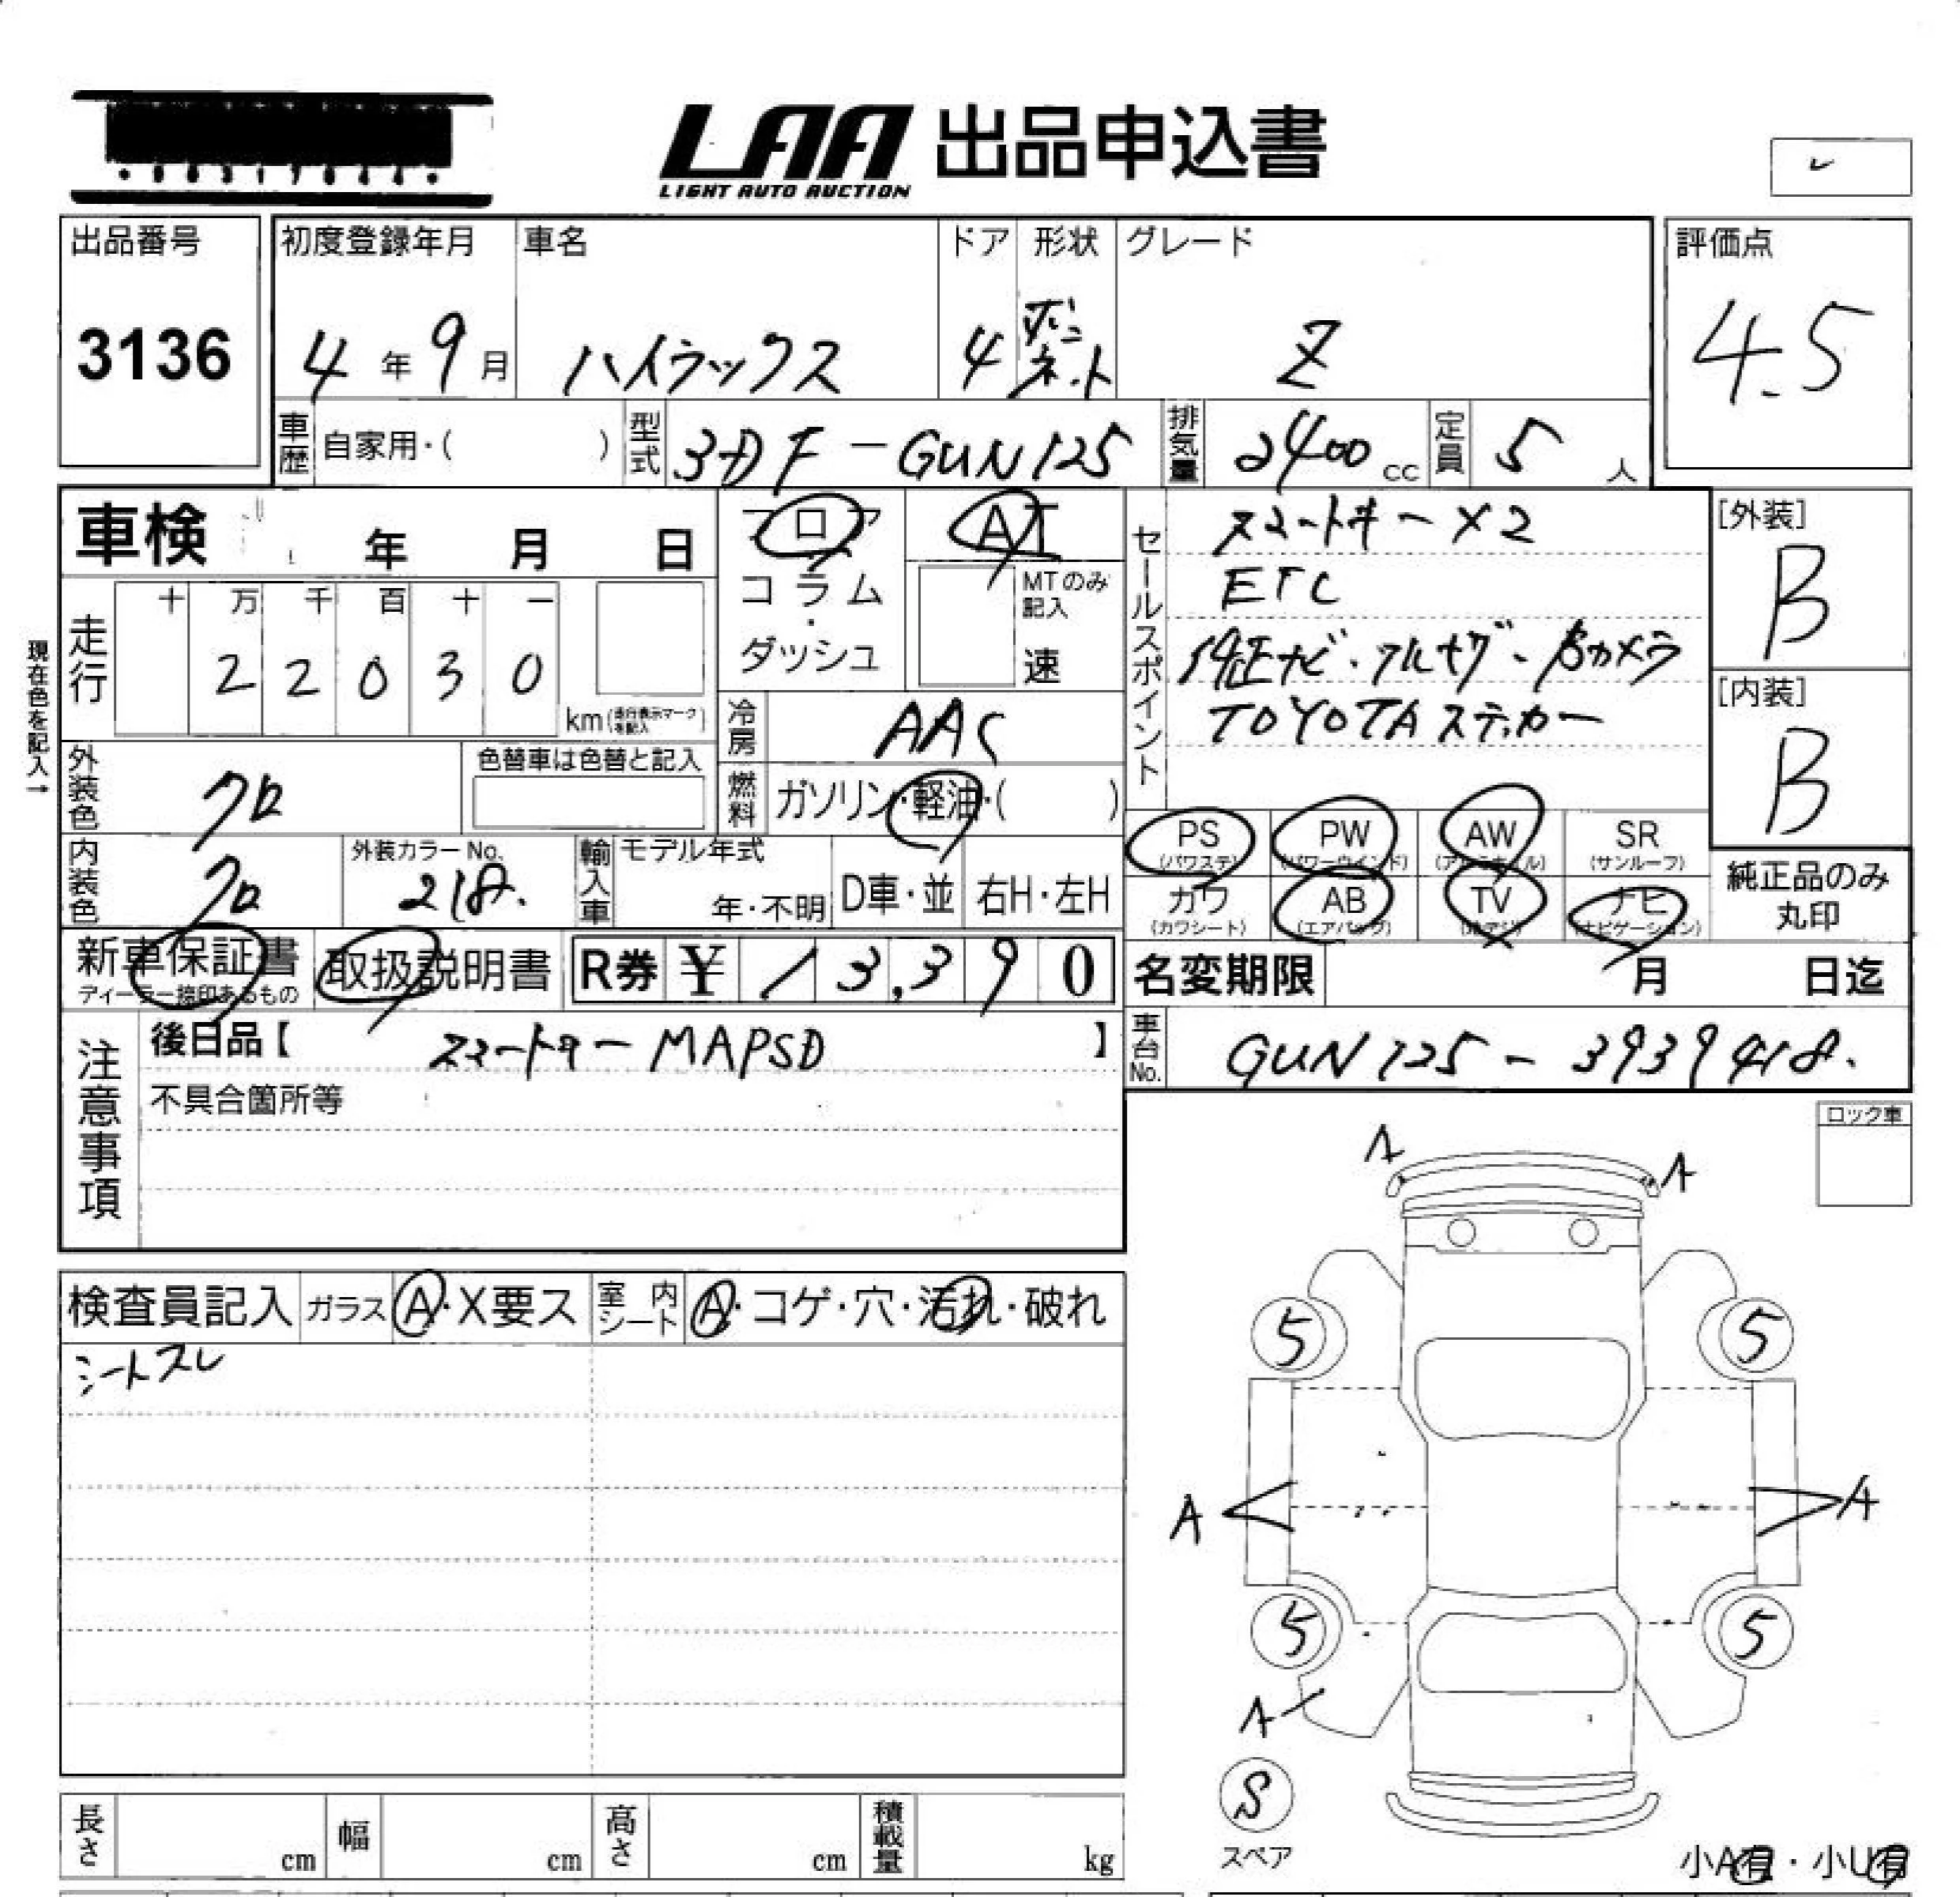 LAA 出品申込書
LIGHT AUTO AUCTION
出品番号
3136
初度登録年月
4年9月
車名
ハイラックス
ドア
4
形状
ボンネット
グレード
Z
評価点
4.5
車歴 自家用・( )
型式 3DF-GUN125
排気量 2400 cc
定員 5 人
車検 年 月 日
フロア
コラム
・
ダッシュ
AT
MTのみ記入
速
セールスポイント
スマートキー×2
ETC
純正ナビ・フルセグ・Bカメラ
TOYOTAステッカー
[外装]
B
[内装]
B
現在色を記入→
走行
十 万 千 百 十 一
2 2 0 3 0
km(走行表示マークを記入)
冷房 AAC
外装色 クロ
色替車は色替と記入
燃料 ガソリン・軽油・( )
PS (パワステ)
PW (パワーウインド)
AW (アルミホイル)
SR (サンルーフ)
内装色 クロ
外装カラーNo. 218.
輸入車 モデル年式
年・不明
D車・並
右H・左H
カワ (カワシート)
AB (エアバッグ)
TV (地デジ)
ナビ (ナビゲーション)
純正品のみ
丸印
新車保証書
ディーラー捺印あるもの
取扱説明書
R券 ¥ 13,390
名変期限 月 日迄
注意事項
後日品【 スマートキー MAPSD 】
不具合箇所等
車台No. GUN125-3939418.
ロック車
A A
検査員記入
ガラス A・X要ス
室内シート A・コゲ・穴・汚れ・破れ
シートスレ
5 5
A A
5 5
A
S
スペア
長さ cm
幅 cm
高さ cm
積載量 kg
小A有・小U有